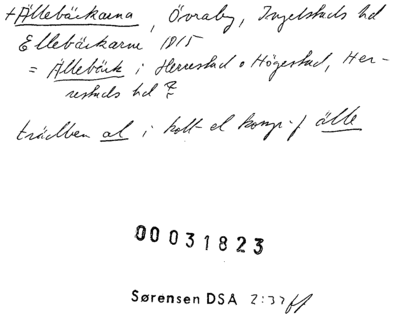 + Ällebäckarna, Övraby, Ingelstads hd
Ellebäckarne 1815
= Ällebäck i Herrestad o Högestad, Her-
restads hd ?
trädben al i koll- el komp-f älle
00 031823
Sørensen DSA 2:37 ff